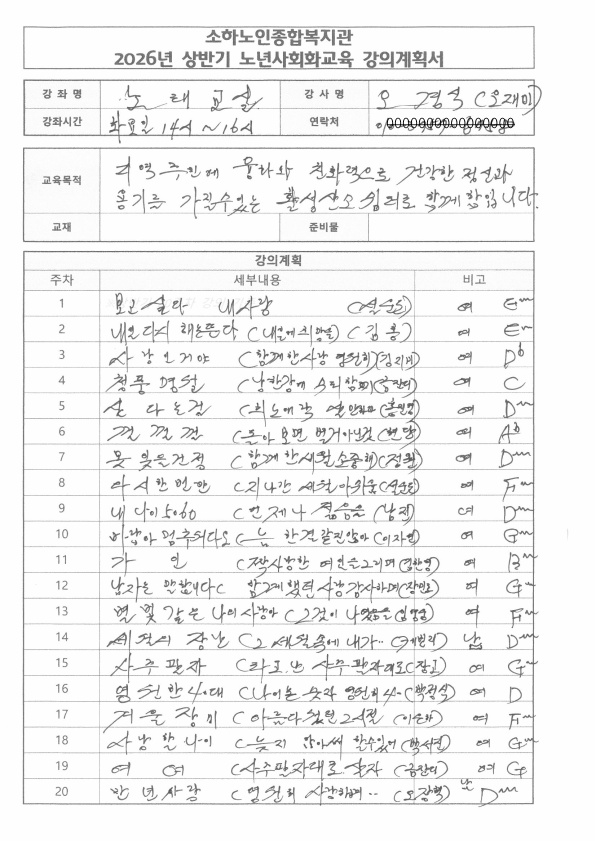 소하노인종합복지관
2026년 상반기 노년사회화교육 강의계획서
강 좌 명 노래교실 강 사 명 오경숙(오재미)
강좌시간 화요일 14시~16시 연락처
교육목적 지역주민에 융화와 친화력으로 건강한 정신과
용기를 가질수있는 활성산소 심리로 함께 함입니다.
교재 준비물
강의계획
주차 세부내용 비고
1 보고싶다 내사랑 여 Em
2 내일다시 해는뜬다 (내일에 희망을) (김용) 여 Em
3 사랑인거야 (함께한사랑 영원히) 여 Db
4 청풍명월 (남한강에 (금잔디) 여 C
5 산다는건 (희노애락 (홍진영) 여 Dm
6 껄껄껄 (돌아보면 별거아닌것 여 Ab
7 못잊을건정 (함께한세월 소중해 (정원) 여 Dm
8 다시한번만 (지나간 세월 아쉬움 여 Fm
9 내나이5060 (언제나 젊음을 (남진) 여 Dm
10 바람아 멈추어다오 (늘 한결같진않아 (이지연) 여 Gm
11 가인 (짝사랑한 여인을그리며 여 Bm
12 남자는 말합니다 ( 함께했던 사랑 감사하며 (장민호) 여 Gm
13 별빛같은 나의사랑아 (그것이 나였음을 (임영웅) 여 Fm
14 세월의 장난 (그 세월속에 내가.. 남 Dm
15 사주팔자 사주팔자대로 여 Gm
16 영원한 40대 (나이는 숫자 영원히 40 여 D
17 겨울장미 (아름다웠던 그시절 여 Fm
18 사랑할나이 (늦지 않아써 할수있어 여 Gm
19 여여 (사주팔자대로 살자 (금잔디) 여 G
20 반년사랑 (영원히 사랑하며.. 남 Dm